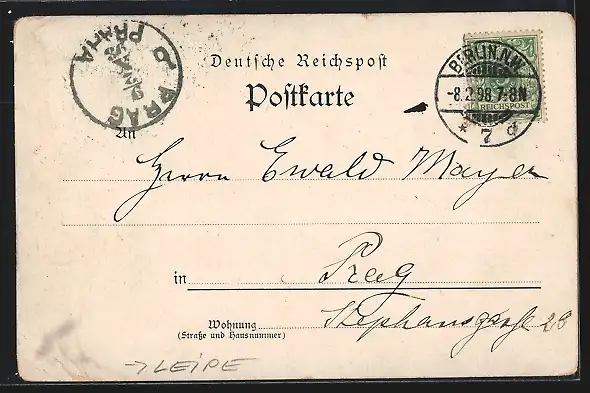 Deutsche Reichspost
Postkarte
BERLIN.N.W.
-8.2.98.7-8N
* 7 d
REICHSPOST
PRAG
PRAHA
An
Herrn Ewald Mayer
in Prag
Wohnung Stephansgasse 28
(Straße und Hausnummer)
→ LEIPE